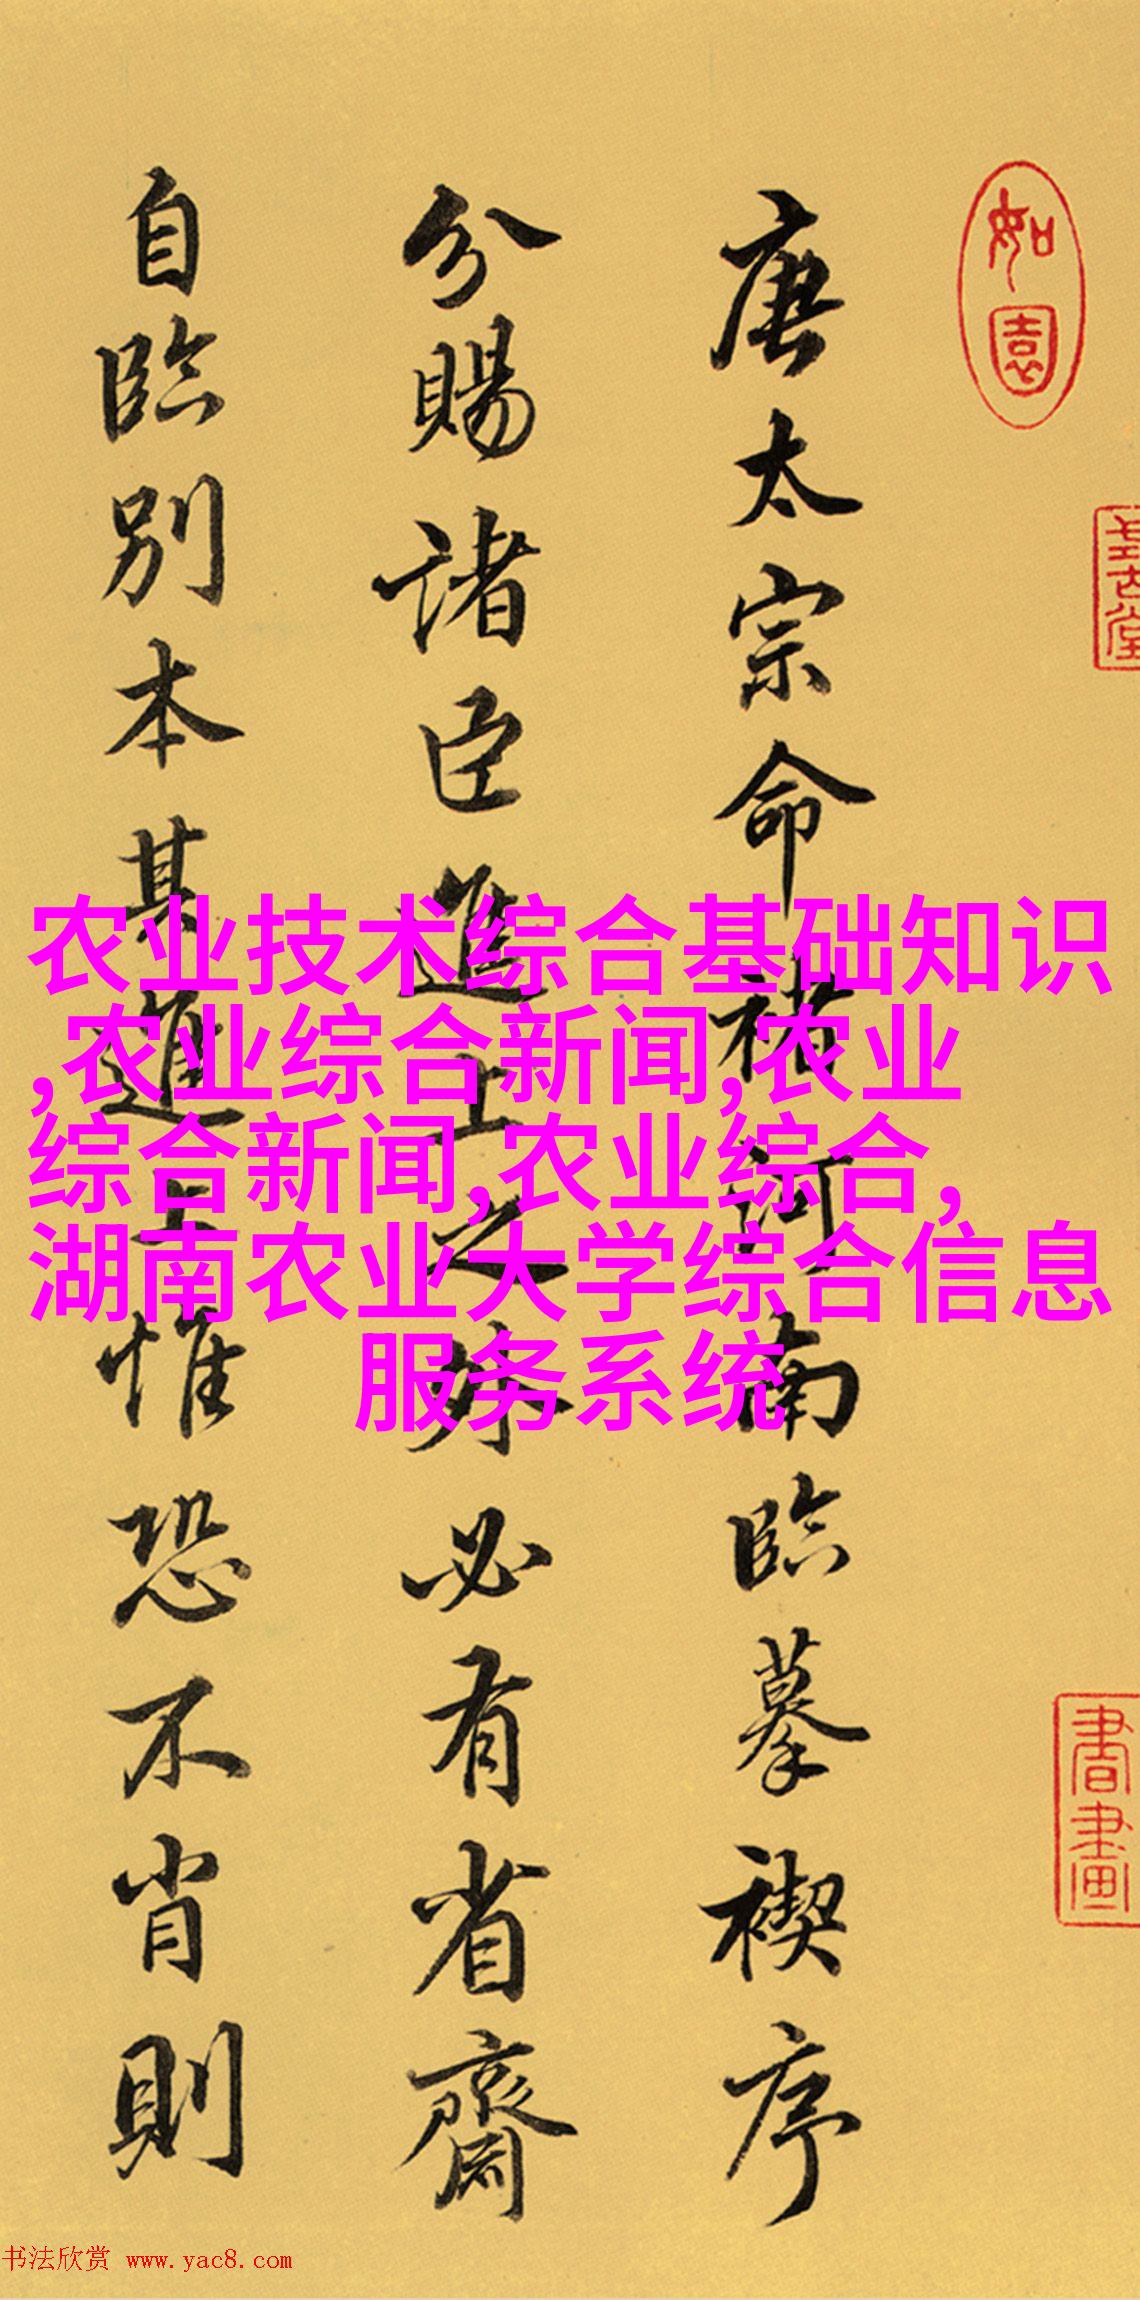 如園
書畫
唐太宗命褚河南臨摹禊序
分賜諸臣進上之必有省齋
自臨別本其進上惟恐不肖則
农业技术综合基础知识
,农业综合新闻,农业
综合新闻,农业综合,
湖南农业大学综合信息
服务系统
书法欣赏 www.yac8.com